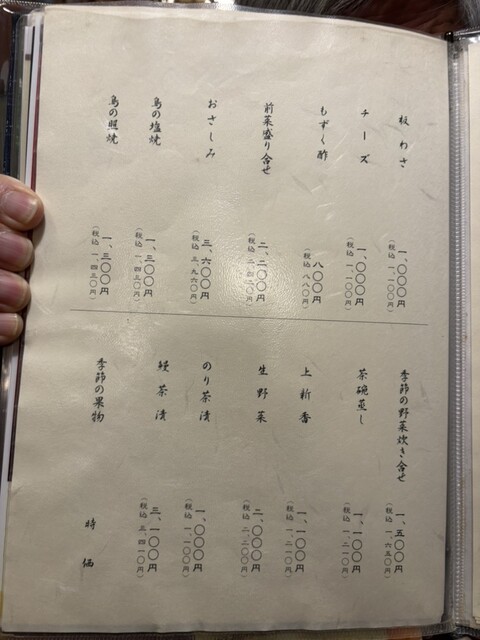 板わさ
一、〇〇〇円
(税込 一、一〇〇円)
チーズ
一、〇〇〇円
(税込 一、一〇〇円)
もずく酢
八〇〇円
(税込 八八〇円)
前菜盛り合せ
二、二〇〇円
(税込 二、四二〇円)
おさしみ
三、六〇〇円
(税込 三、九六〇円)
鳥の塩焼
一、三〇〇円
(税込 一、四三〇円)
鳥の照焼
一、三〇〇円
(税込 一、四三〇円)
季節の野菜炊き合せ
一、五〇〇円
(税込 一、六五〇円)
茶碗蒸し
一、一〇〇円
(税込 一、二一〇円)
上新香
一、一〇〇円
(税込 一、二一〇円)
生野菜
二、〇〇〇円
(税込 二、二〇〇円)
のり茶漬
一、〇〇〇円
(税込 一、一〇〇円)
鰻茶漬
三、一〇〇円
(税込 三、四一〇円)
季節の果物
時価